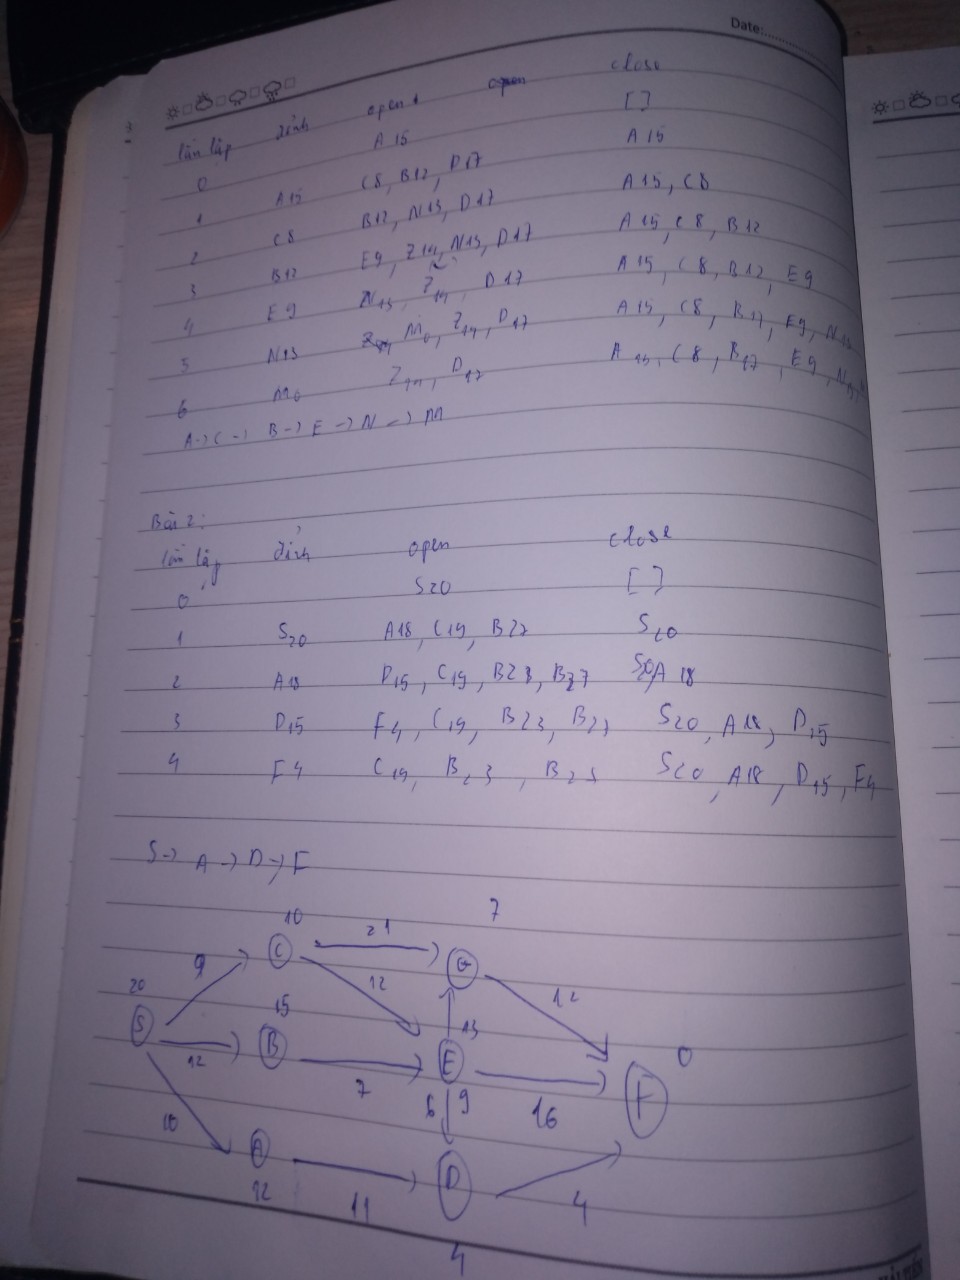 Date:
lần lặp đỉnh open close
0 A15 []
1 A15 C8, B12, D17 A15
2 C8 B12, N13, D17 A15, C8
3 B12 E9, Z14, N13, D17 A15, C8, B12
4 E9 N13, Z14, D17 A15, C8, B12, E9
5 N13 M0, Z14, D17 A15, C8, B17, E9, N13
6 M0 Z14, D17 A15, C8, B17, E9,
A -> C -> B -> E -> N -> M
Bài 2:
lần lặp đỉnh open close
0 S20 []
1 S20 A18, C19, B27 S20
2 A18 D15, C19, B23, B27 S20, A 18
3 D15 F4, C19, B23, S20, A18, D15
4 F4 C19, B23, S20, A18, D15, F4
S -> A -> D -> F
10 7
21
9 C G
20 12 12
15
S B 13 0
12 E F
7 6 9 16
10
A D
12 11 4
4